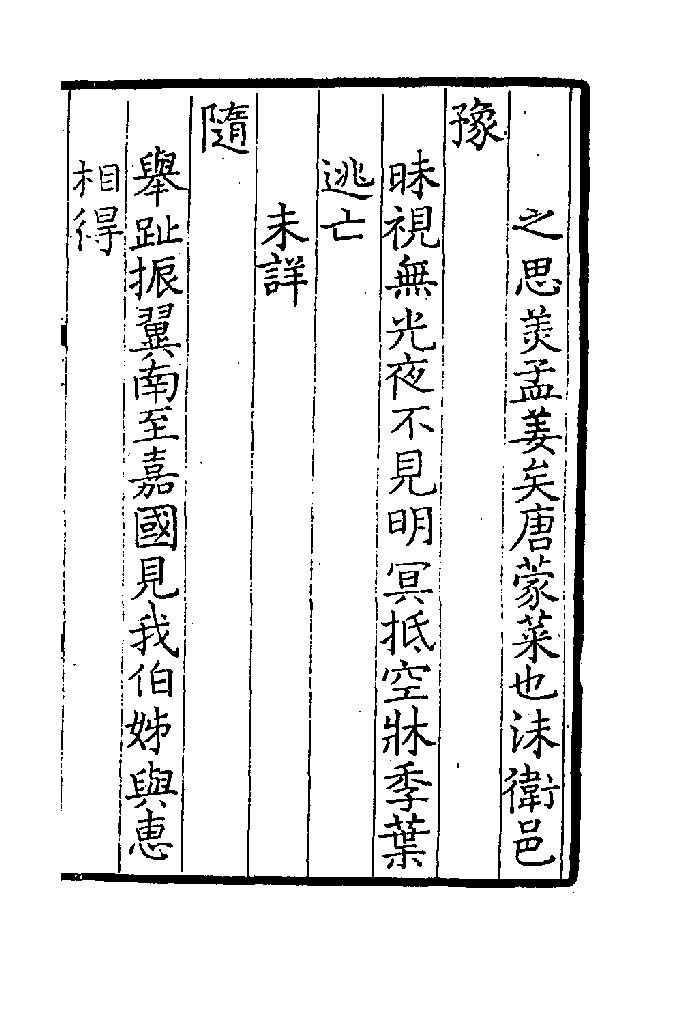 之思羙孟姜矣唐蒙菜也沬衛邑
豫
眛視無光夜不見明冥抵空牀季葉
逃亡
未詳
隨
舉趾振翼南至嘉國見我伯姊與惠
相得